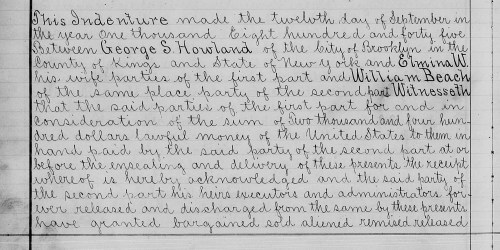 This Indenture made the twelvth day of September in
the year One thousand Eight hundred and forty five
Between George S. Howland of the City of Brooklyn in the
County of Kings and State of New York and Elmina W.
his wife parties of the first part and William Beach
of the same place party of the second part Witnesseth
that the said parties of the first part for and in
consideration of the sum of Two thousand and four hun-
dred dollars lawful money of the United States to them in
hand paid by the said party of the second part at or
before the ensealing and delivery of these presents the receipt
whereof is hereby acknowledged and the said party of
the second part his heirs executors and administrators for-
ever released and discharged from the same by these presents
have granted bargained sold aliened remised released